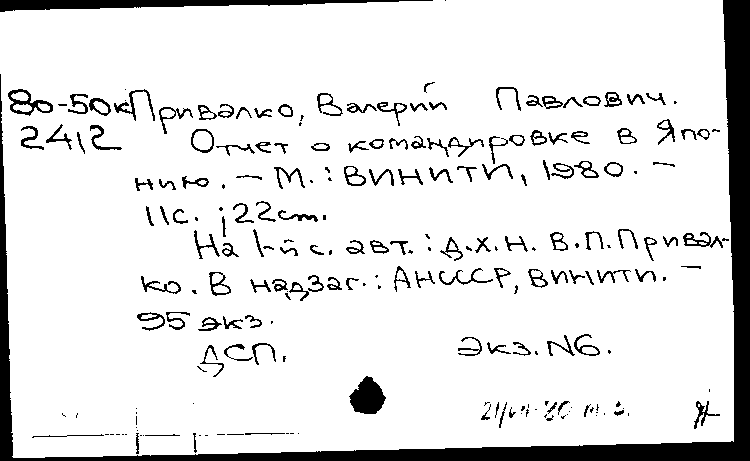 80-50к Привалко, Валерий Павлович.
2412 Отчет о командировке в Япо-
нию. – М.: ВИНИТИ, 1980. –
11с. ; 22cm.
На 1-й с. авт.: д.х.н. В.П. Привал-
ко. В надзаг.: АНСССР, ВИНИТИ. –
95 экз.
ДСП. Экз. N6.